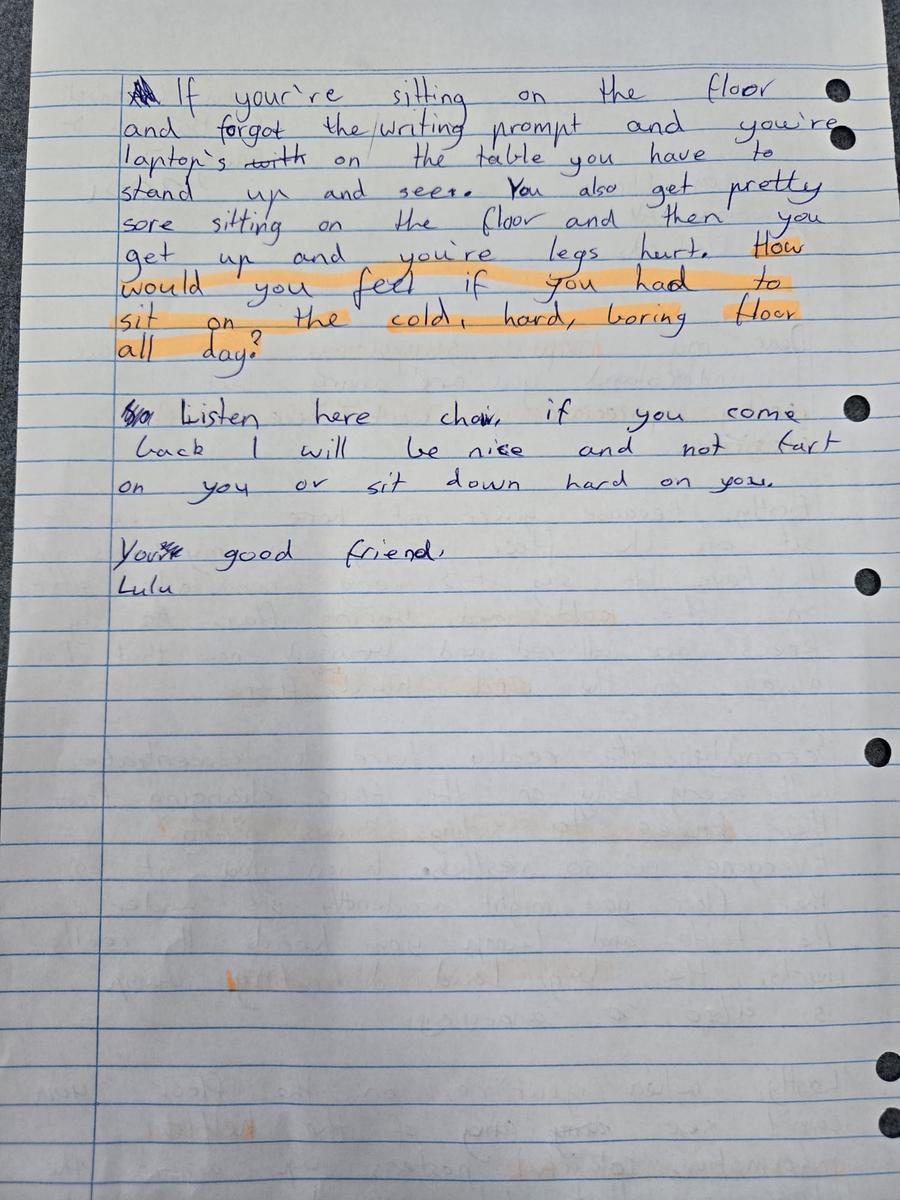 If your're sitting on the floor
and forgot the writing prompt and you're
laptop's with on the table you have to
stand up and see. You also get pretty
sore sitting on the floor and then you
get up and you're legs hurt. How
would you feel if you had to
sit on the cold, hard, boring floor
all day?
Listen here chair, if you come
back I will be nice and not fart
on you or sit down hard on you.
Your good friend,
Lulu